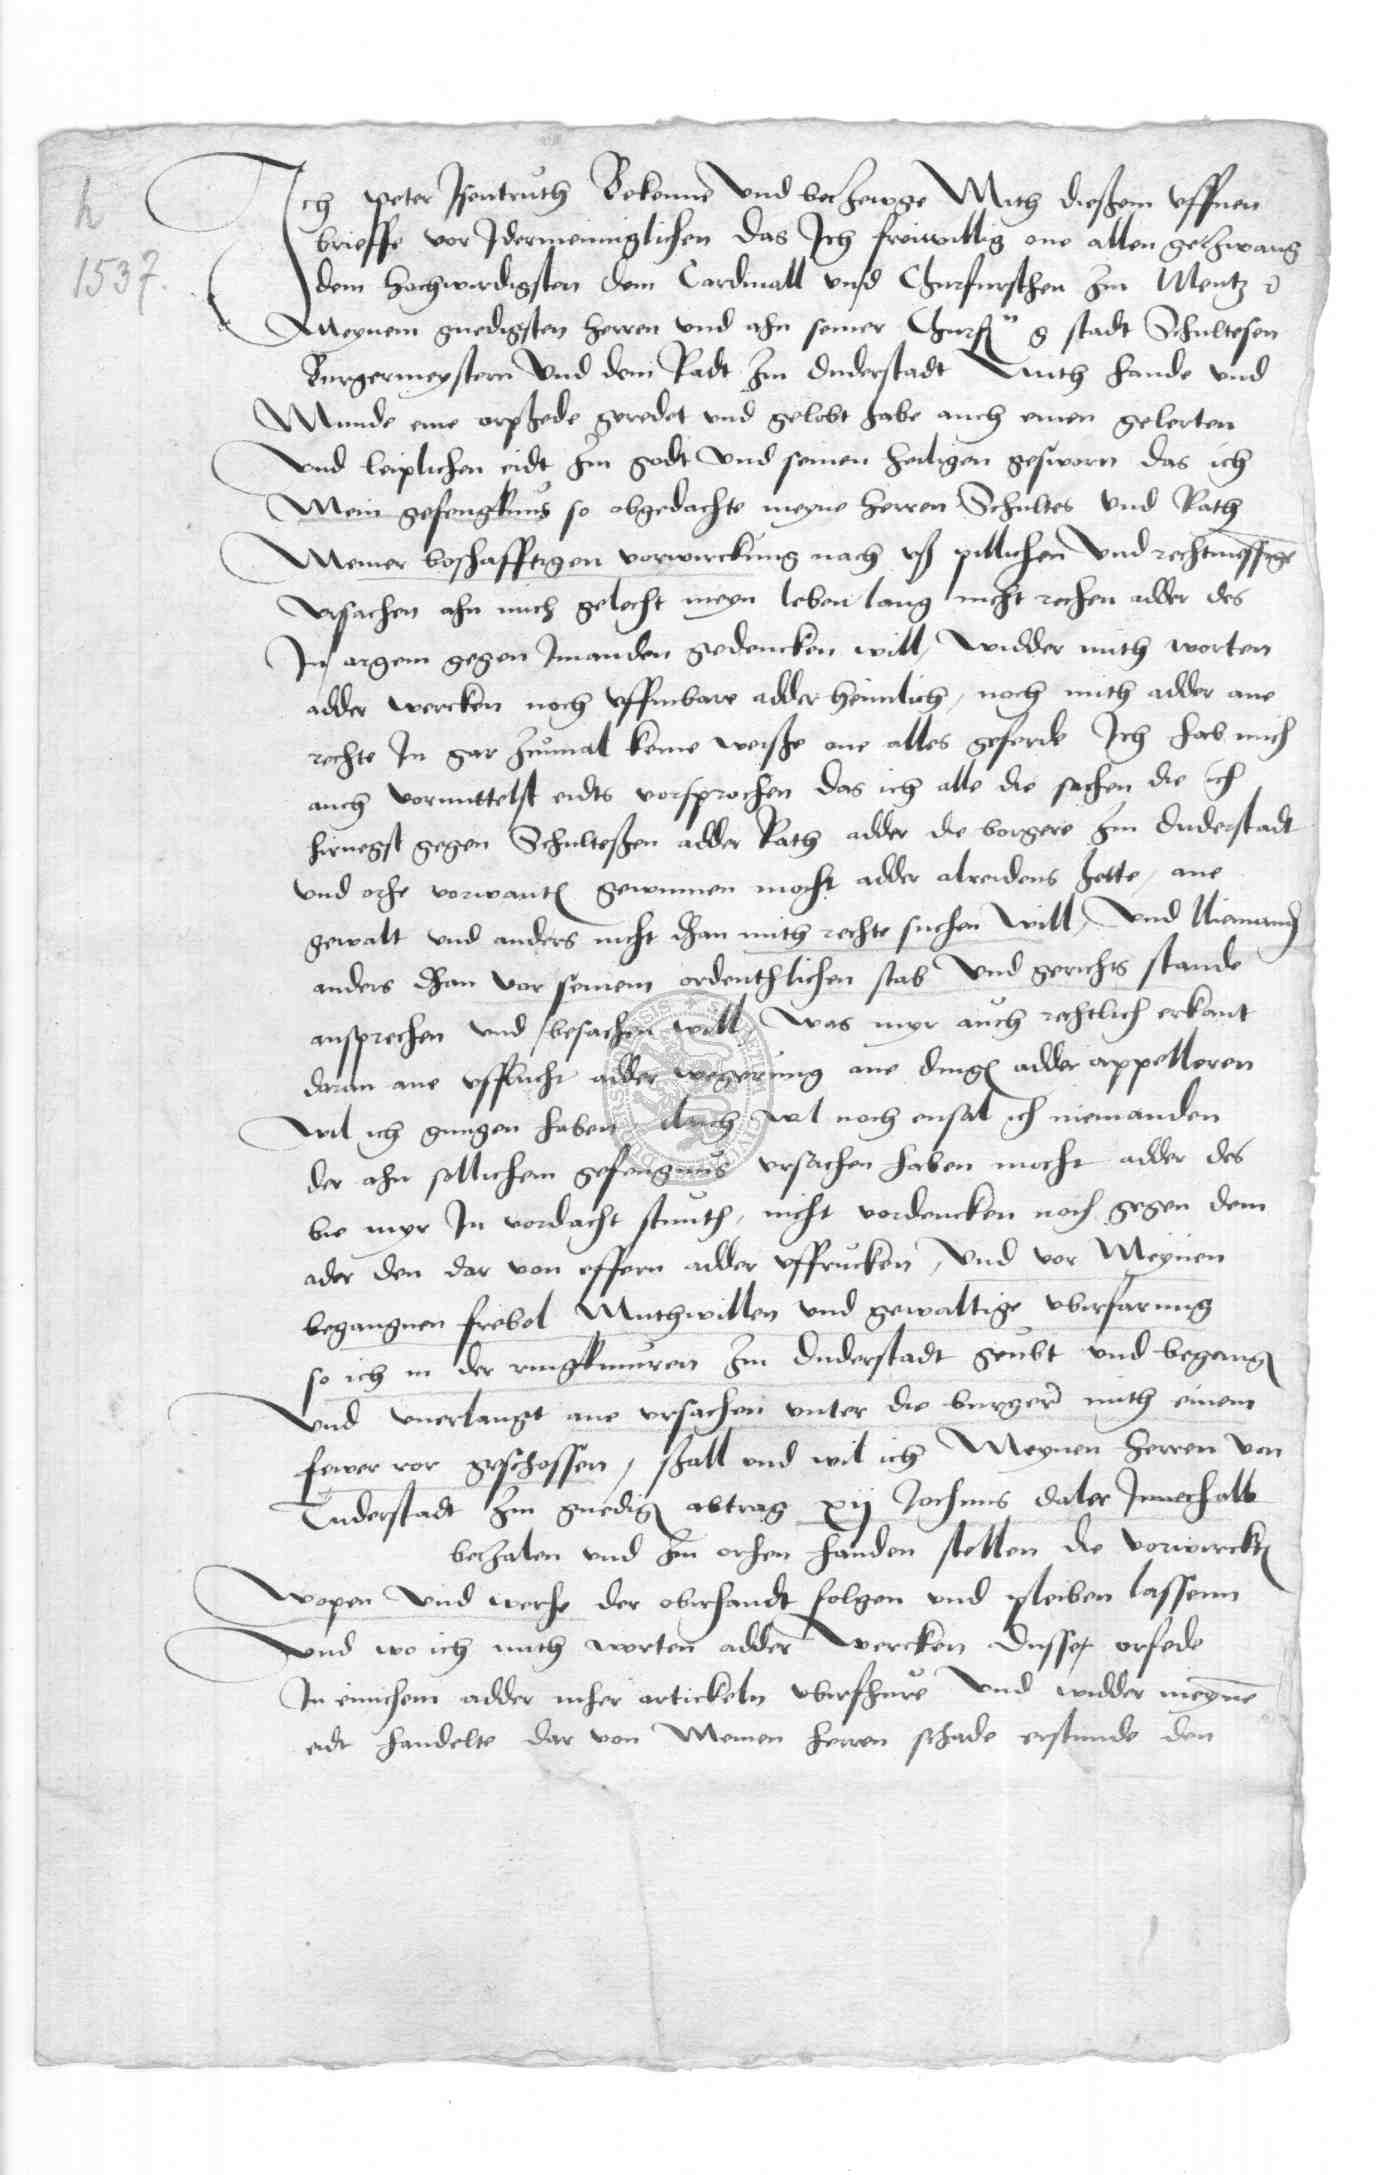 h
1537.
Ich peter Isentruth Bekenne Und betzewge Mith dießem uffnen
brieffe vor Idermenniglichen das Ich freiwillig one allen getzwang
dem hochwirdigsten dem Cardinall und Churfursthen Zw Mentz
Meynem gnedigsten herren und ahn seiner Churf g stadt Schultesen
Burgermeystern Und dem Radt Zw duderstadt Mith hande und
Munde eine orphede geredet und gelobt habe auch einen gelerten
Und leiplichen eidt Zw godt Und seinen heiligen gesworn das ich
Mein gefengknus so obgedachte meyne herren Schultes und Rath
Meiner boshafftigen vorwirckung nach uß pillichen Und rechtmessige
ursachen ahn mich gelecht meyn leben lang nicht rechen adder des
In argem gegen Imanden gedencken will, Widder mith worten
adder wercken noch uffinbare adder heimlich, noch mith adder ane
rechte In gar Zumal keine weiße one alles geferde Ich hab mich
auch vormittelst eidts vorsprochen das ich alle die sachen die ich
hirnegst gegen Schulteßen adder Rath adder die borgere Zw duderstadt
und orhe vorwanth gewinnen mocht adder alreidens hette, ane
gewalt und anders nicht dan mith rechte suchen Will, Und Niemandz
anders dan vor seinem ordenthlichen stab Und gerichts stande
ansprechen und besachen will, Was myr auch rechtlich erkant
daran ane ufflucht adder wegerung ane dinge adder appelleren
Wil ich gnugen haben, Auch wil noch ensal ich niemanden
der ahn sollichem gefengnus ursachen haben mocht adder des
bie myr In vordacht stunth, nicht vordencken noch gegen dem
ader den dar von effern adder uffrucken, Und vor Meynen
begangnen frebol Muthwillen und gewaltige ubirfarung
so ich in der ringkmuren Zw duderstadt geubt und begangen
Und unerlangt ane ursachen unter die burger mith einem
fewer ror geschossen, shall und wil ich Meynen herren von
Duderstadt Zw gnedig abtrag xij Jochims daler Innerhalb
betzalen und Zw orhen handen stellen die vorwirckt
Wopen Und werhe der obirhandt folgen und pleiben lassenn
Und wo ich mith worten adder Wercken dusser orfede
In einichem adder meher artickeln ubirfhure Und widder meyne
eidt handelte dar von Meinen herren schade erstunde den